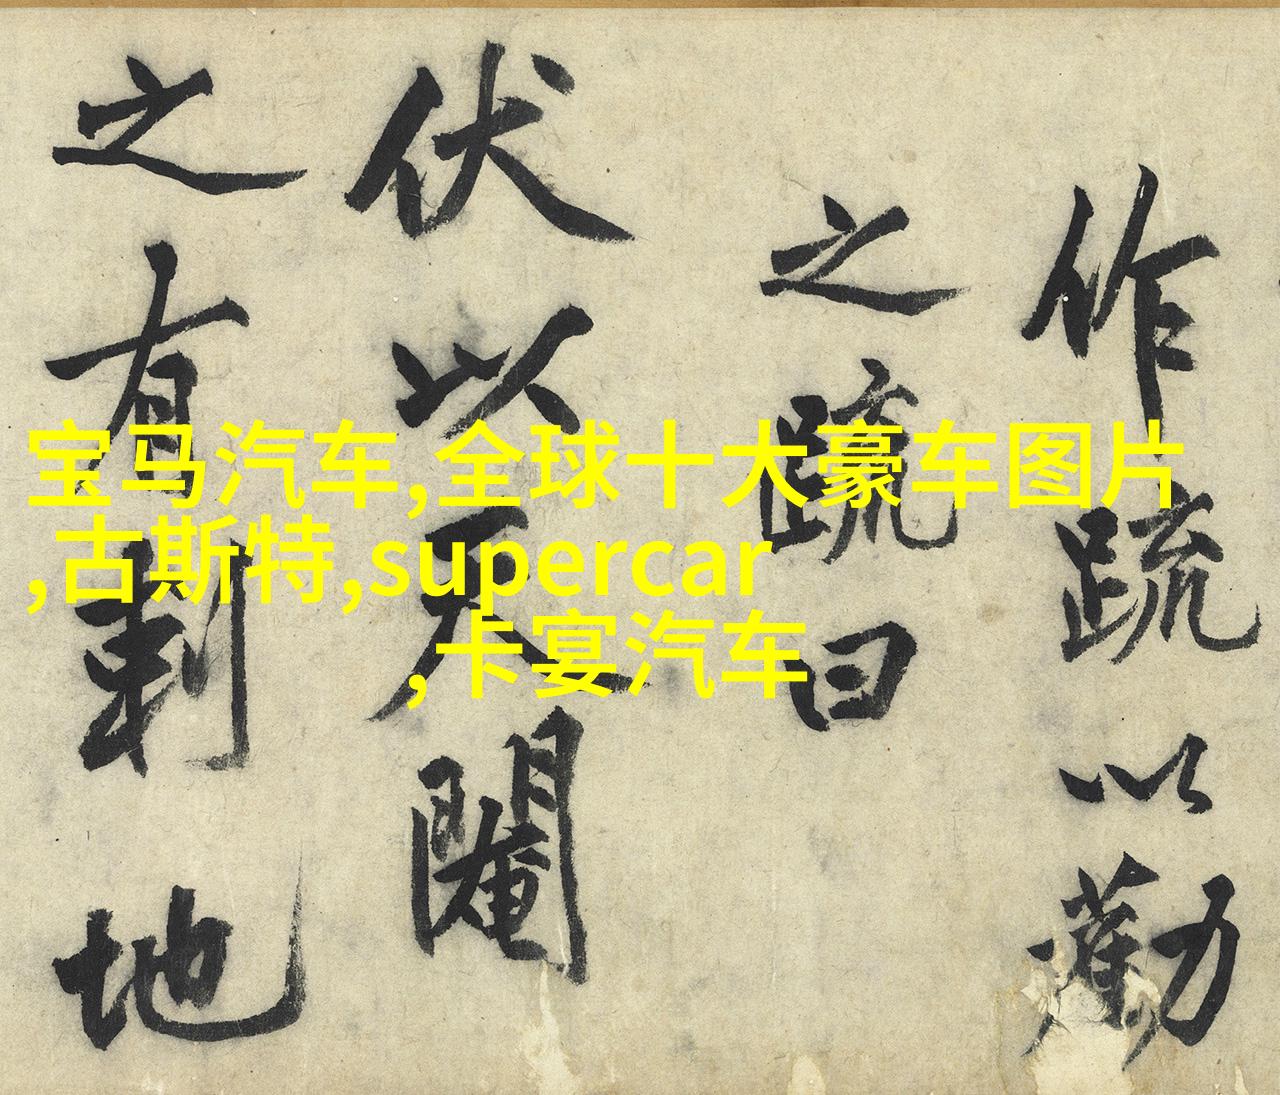 作疏以勸
之疏曰
伏以天閹
之有刺地
宝马汽车,全球十大豪车图片
,古斯特,supercar
,卡宴汽车